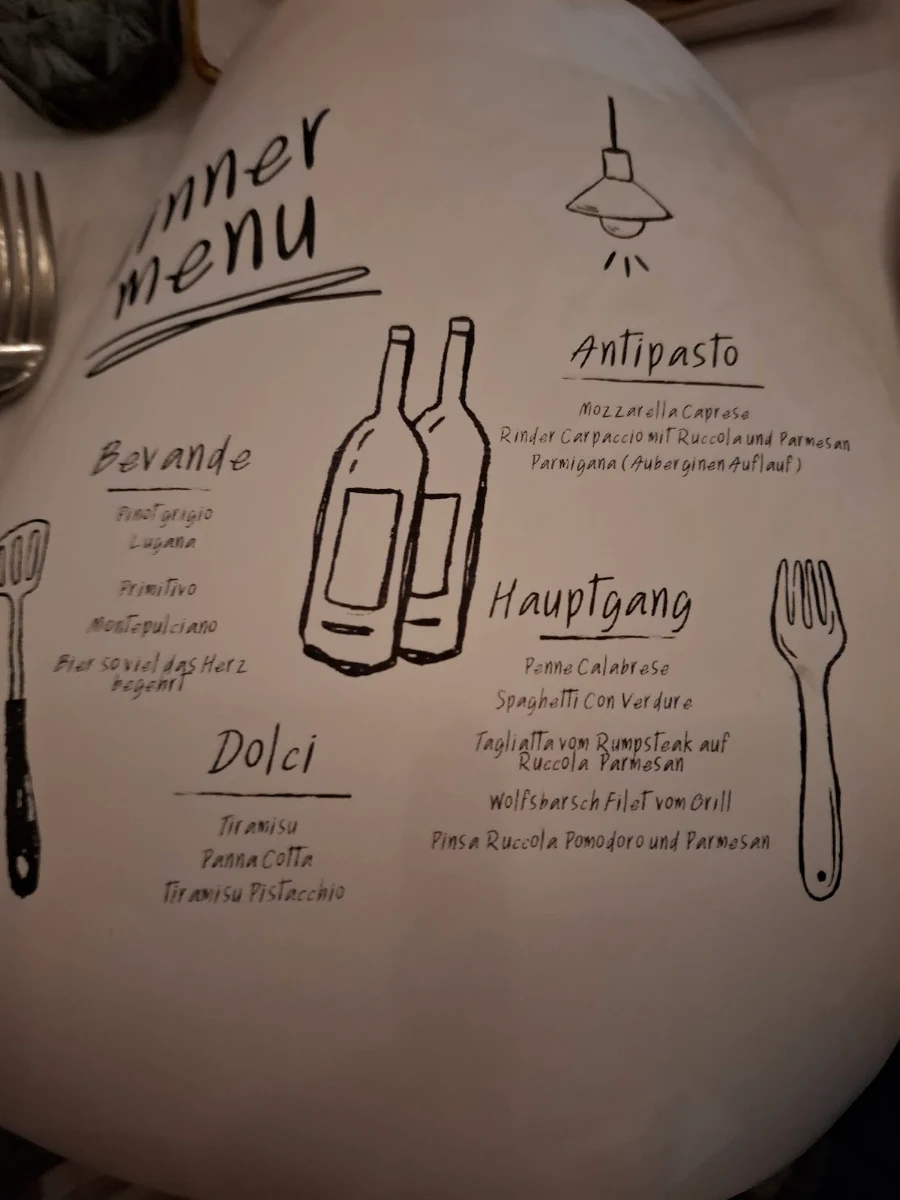 inner
menu
Bevande
Pinot grigio
Lugana
Primitivo
Montepulciano
Bier so viel das Herz
begehrt
Dolci
Tiramisu
Panna Cotta
Tiramisu Pistacchio
Antipasto
Mozzarella Caprese
Rinder Carpaccio mit Ruccola und Parmesan
Parmigana (Auberginen Auflauf)
Hauptgang
Penne Calabrese
Spaghetti Con Verdure
Tagliatta vom Rumpsteak auf
Ruccola Parmesan
Wolfsbarsch Filet vom Grill
Pinsa Ruccola Pomodoro und Parmesan